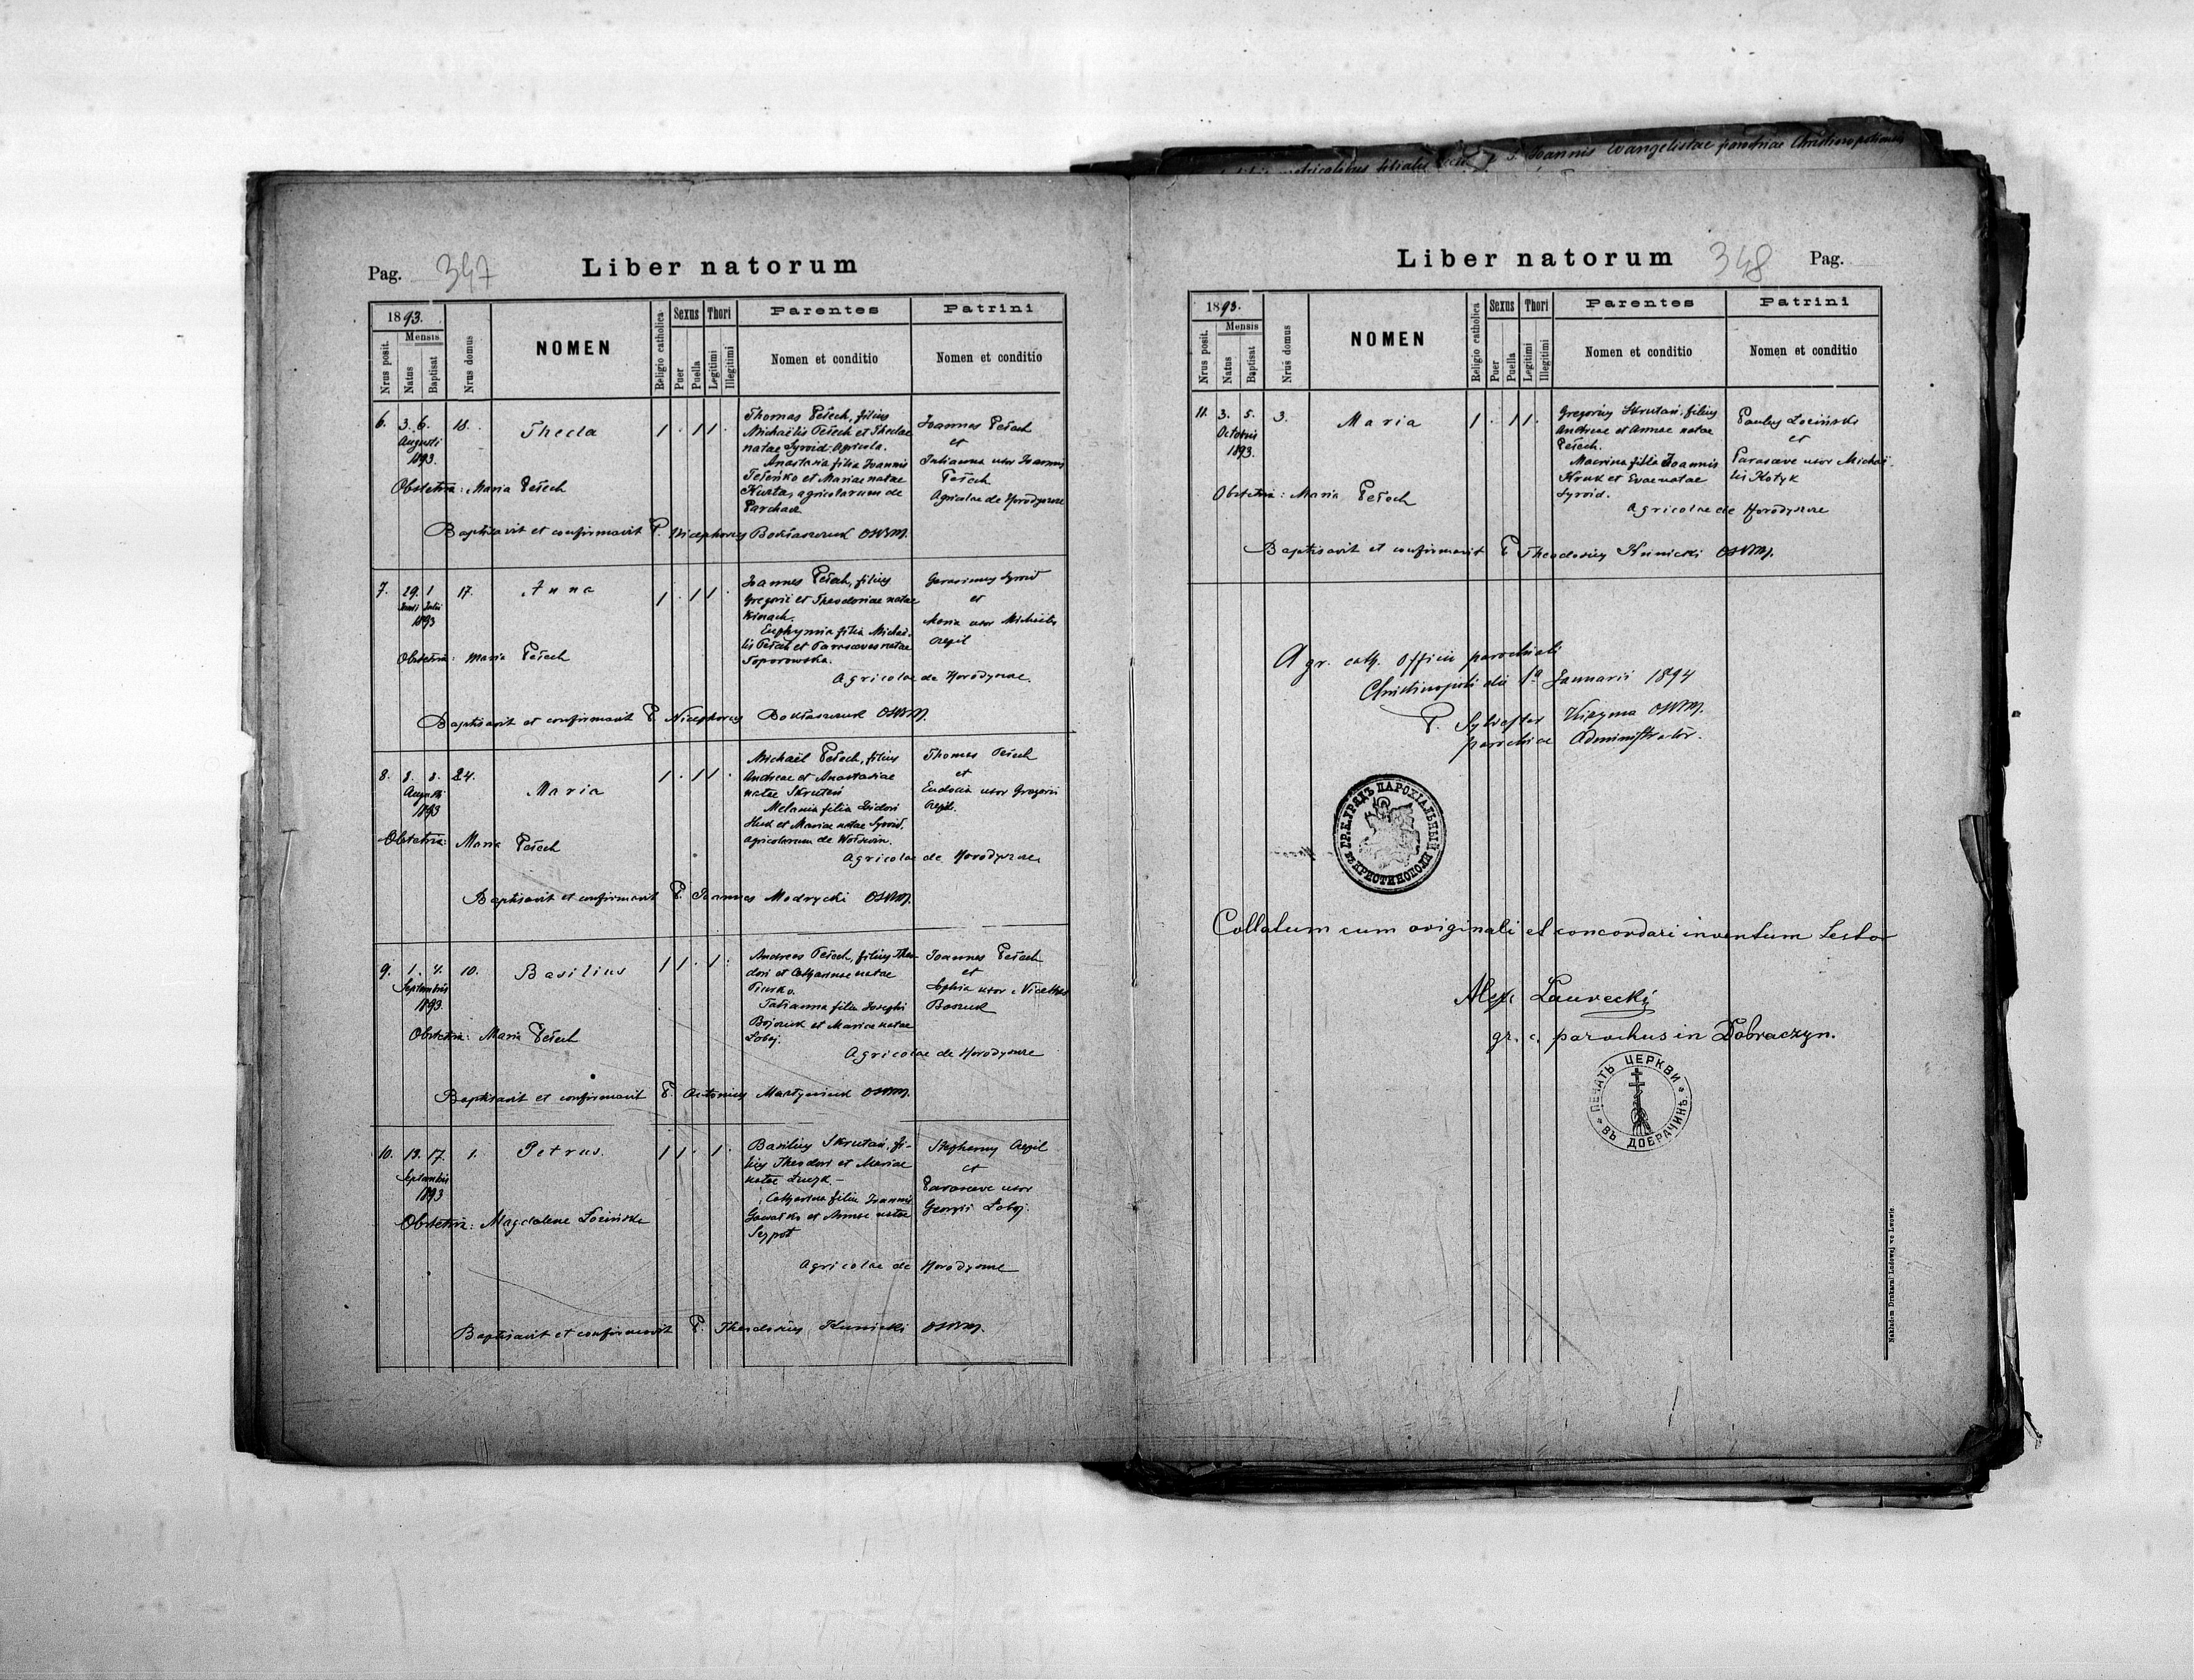 Joannis Evangelistae
Pag. 347
Liber natorum
1893.
Mensis
Nrus posit.
Natus
Baptisat
Nrus domus
NOMEN
Religio catholica
Sexus
Puer
Puella
Thori
Legitimi
Illegitimi
Parentes
Nomen et conditio
Patrini
Nomen et conditio
6. 3. 6. 18. Thecla 1 . 1 1 .
Augusti
1893.
Thomas Pełech, filius
Michaëlis Pełech et Theclae
natae Syroid. Agricola.
Anastasia filia Joannis
et Mariae natae
agricolarum de
Parchacz
Joannes Pełech
et
Julianna uxor Joannis
Pełech
Agricolae de Horodyszcze
Obstetrix: Maria Pełech
Baptisavit et confirmavit P. Nicephorus OSBM.
7. 29. 1 17. Anna 1 . 1 1 .
Junii Julii
1893
Joannes Pełech, filius
Gregorii et Theodoriae natae
Kinach.
Euphymia filia Michaë-
lis Pełech et Parascevae natae
Toporowska.
Gerasimus Syroid
et
Maria uxor Michaëlis
Obstetrix: Maria Pełech
Agricolae de Horodyszcze.
Baptisavit et confirmavit P. Nicephorus OSBM.
8. 8. 8. 24. Maria 1 . 1 1 .
Augusti
1893
Michaël Pełech, filius
Andreae et Anastasiae
natae Skruteń
Melania filia Isidori
et Mariae natae Syroid,
agricolarum de Wołswin.
Thomas Pełech
et
Eudocia uxor Gregorii
Obstetrix: Maria Pełech
Agricolae de Horodyszcze
Baptisavit et confirmavit P. Joannes Modrycki OSBM.
9. 1. 4. 10. Basilius 1 1 . 1 .
Septembris
1893.
Andreas Pełech, filius Theo-
dori et Catharinae natae
Tatianna filia Josephi
et Mariae natae
Łoboj.
Joannes Pełech
et
Sophia uxor Nicethae
Obstetrix: Maria Pełech
Agricolae de Horodyszcze
Baptisavit et confirmavit P. Antonius Martyniuk OSBM.
10. 13. 17. 1. Petrus. 1 1 . 1 .
Septembris
1893
Basilius Skrutań, fi-
lius Theodori et Mariae
natae
Catharina filia Joannis
et Annae natae
Stephanus
et
Parasceve uxor
Georgii Łoboj.
Obstetrix: Magdalena Łozińska
Agricolae de Horodyszcze
Baptisavit et confirmavit P. Theodosius Kunicki OSBM.
Liber natorum
348 Pag.
1893.
Mensis
Nrus posit.
Natus
Baptisat
Nrus domus
NOMEN
Religio catholica
Sexus
Puer
Puella
Thori
Legitimi
Illegitimi
Parentes
Nomen et conditio
Patrini
Nomen et conditio
11. 3. 5. 3. Maria 1 . 1 1 .
Octobris
1893.
Gregorius Skrutań, filius
Andreae et Annae natae
Pełech.
Macrina filia Joannis
Kruk et Evae natae
Syroid.
Paulus Łoziński
et
Parasceve uxor Michaë-
lis Kotyk
Obstetrix: Maria Pełech
Agricolae de Horodyszcze
Baptisavit et confirmavit P. Theodosius Kunicki OSBM.
A gr. cath. Officii parochiali
Christinopoli die 1a Januarii 1894
P. Sylvester Kizyma OSBM.
parochiae Administrator.
ГР. К. УРЯДЪ ПАРОХІАЛЬНЫЙ въ КРИСТИНОПОЛИ
Collatum cum originali et concordari inventum testor
Alex. Laurecki
gr. c. parochus in Dobraczyn.
ПЕЧАТЬ ЦЕРКВИ ВЪ ДОБРАЧИНѢ
Nakładem Drukarni Ludowej we Lwowie